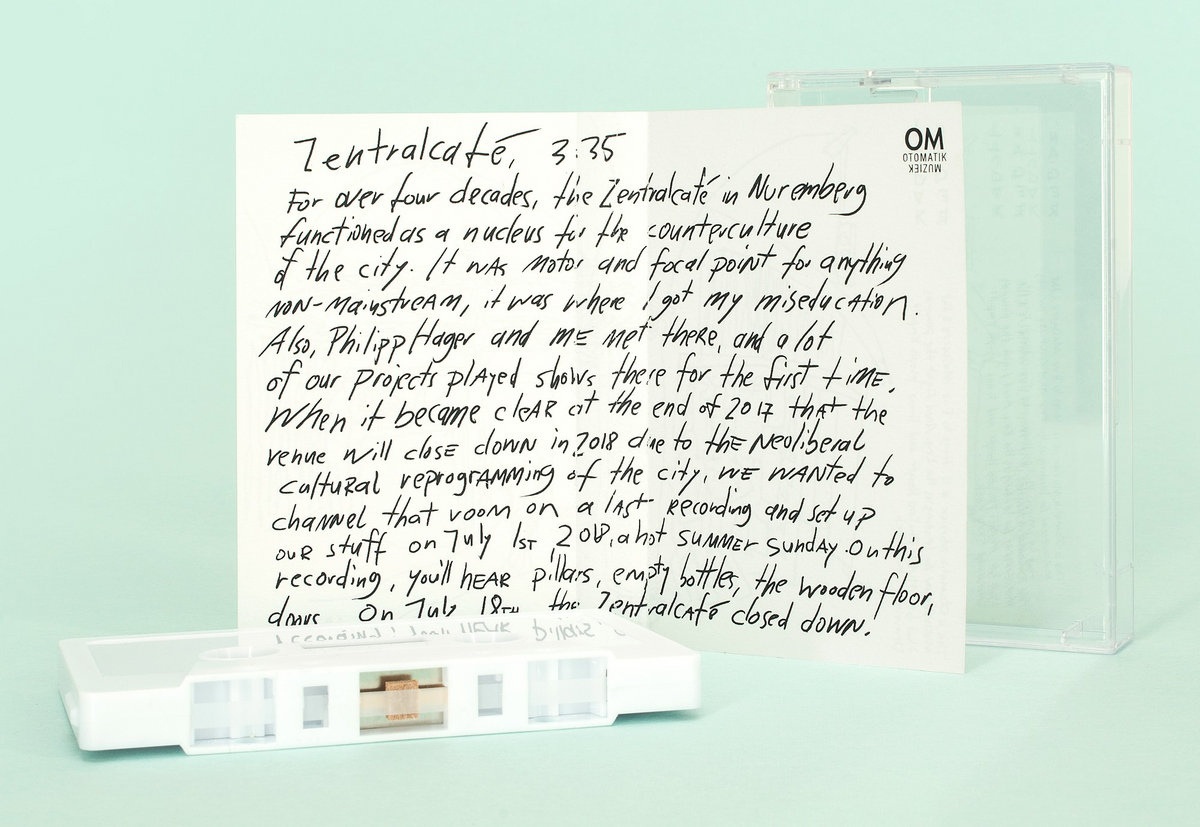 Zentralcafé, 3:35
For over four decades, the Zentralcafé in Nuremberg
functioned as a nucleus for the counterculture
of the city. It was motor and focal point for anything
non-mainstream, it was where I got my miseducation.
Also, Philipp Hager and me met there, and a lot
of our projects played shows there for the first time.
When it became clear at the end of 2017 that the
venue will close down in 2018 due to the neoliberal
cultural reprogramming of the city, we wanted to
channel that room on a last recording and set up
our stuff on July 1st, 2018, a hot summer sunday. On this
recording, you'll hear pillars, empty bottles, the wooden floor,
doors. On July 18th the Zentralcafé closed down!
OM
OTOMATIK
MUZIEK